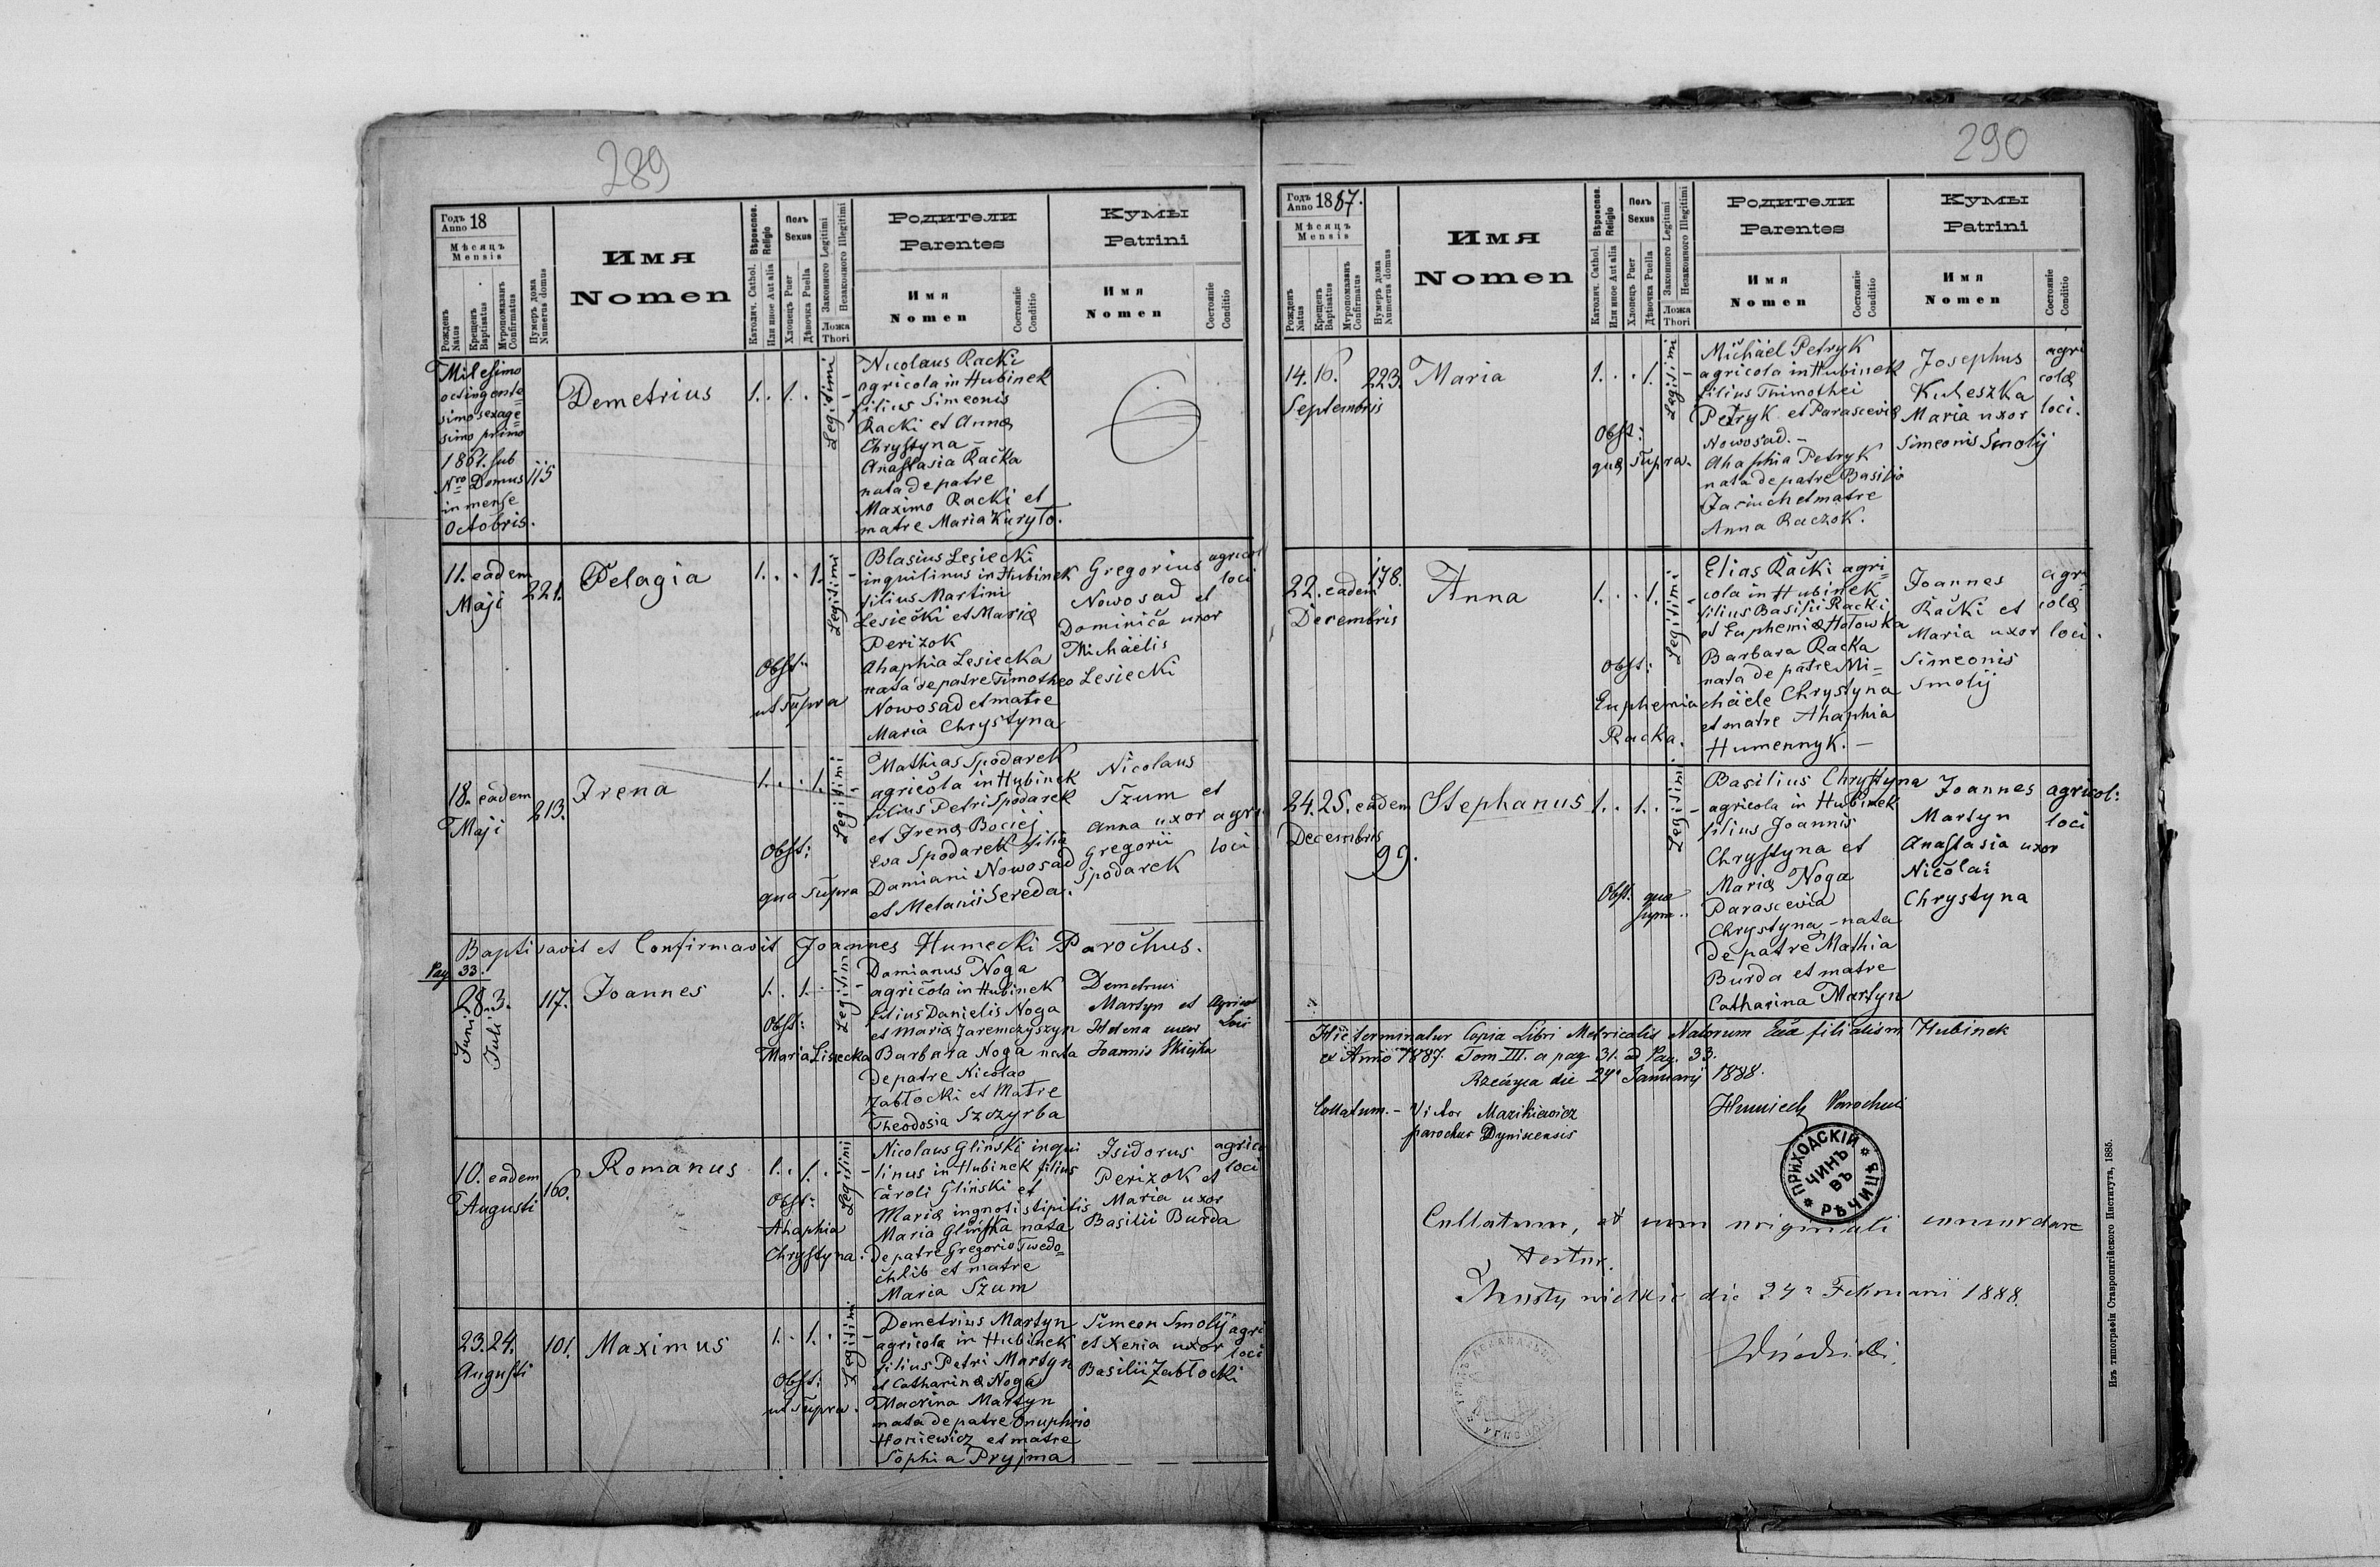 289
Годъ Anno 18
Мѣсяцъ
Mensis
Рожденъ Natus
Крещенъ Baptisatus
Мѵропомазанъ Confirmatus
Нумеръ дома Numerus domus
Имя
Nomen
Вѣроиспов. Religio
Католич. Cathol.
Или иное Aut alia
Полъ
Sexus
Хлопецъ Puer
Дѣвочка Puella
Законного Legitimi
Незаконного Illegitimi
Ложа
Thori
Родители
Parentes
Имя
Nomen
Состояніе
Conditio
Кумы
Patrini
Имя
Nomen
Состояніе
Conditio
Milesimo
octingente=
simo sexage=
simo primo
1861. sub
Nro Domus 115
in mense
Octobris.
Demetrius
1. . 1. .
Legitimi
Nicolaus Racki
agricola in Hubinek
filius Simeonis
Racki et Annæ
Chrystyna –
Anastasia Račka
nata de patre
Maximo Racki et
matre Maria Kuryło.
11. eadem
Maji
221.
Pelagia
1. . . 1.
Legitimi
Obst:
ut supra
Blasius Lesiecki
inquilinus in Hubinek
filius Martini
Lesiecki et Mariæ
Perizok
Ahaphia Lesiecka
nata de patre Timotheo
Nowosad et matre
Maria Chrystyna
Gregorius
Nowosad et
Dominica uxor
Michaëlis
Lesiecki
agricol
loci
18. eadem
Maji
213.
Irena
1. . . 1.
Legitimi
Obst:
qua supra
Mathias Spodarek
agricola in Hubinek
filius Petri Spodarek
et Irenæ Bociej
Eva Spodarek filia
Damiani Nowosad
et Melanii Sereda.
Nicolaus
Szum et
Anna uxor
Gregorii
Spodarek
agri
loci
Baptisavit et Confirmavit Joannes Humecki Parochus.
Pag 33.
28. 3.
Juni Juli
117.
Joannes
1. . 1. .
Legitimi
Obst:
Maria Lisiecka
Damianus Noga
agricola in Hubinek
filius Danielis Noga
et Mariæ Jaremczyszyn
Barbara Noga nata
de patre Nicolao
Zabłocki et Matre
Theodosia Szczyrba
Demetrius
Martyn et
Helena uxor
Joannis
Agricol
loci
10. eadem
Augusti
160.
Romanus
1. . 1. .
Legitimi
Obst:
Ahaphia
Chrystyna.
Nicolaus Gliński inqui
linus in Hubinek filius
Caroli Gliński et
Mariæ ingnoti stipitis
Maria Glińska nata
de patre Gregorio Twedo=
chlib et matre
Maria Szum
Isidorus
Perizok et
Maria uxor
Basilii Burda
agrico
loci
23. 24.
Augusti
101.
Maximus
1. . 1. .
Legitimi
Obst:
ut supra.
Demetrius Martyn
agricola in Hubinek
filius Petri Martyn
et Catharinæ Noga
Macrina Martyn
nata de patre Onuphrio
Horiewicz et matre
Sophia Pryjma
Simeon Smolij
et Xenia uxor
Basilii Zabłocki
agri
loci
290
Годъ Anno 1887.
Мѣсяцъ
Mensis
Рожденъ Natus
Крещенъ Baptisatus
Мѵропомазанъ Confirmatus
Нумеръ дома Numerus domus
Имя
Nomen
Вѣроиспов. Religio
Католич. Cathol.
Или иное Aut alia
Полъ
Sexus
Хлопецъ Puer
Дѣвочка Puella
Законного Legitimi
Незаконного Illegitimi
Ложа
Thori
Родители
Parentes
Имя
Nomen
Состояніе
Conditio
Кумы
Patrini
Имя
Nomen
Состояніе
Conditio
14. 16.
Septembris
223.
Maria
1. . . 1.
Legitimi
Obst:
quæ supra.
Michäel Petryk
agricola in Hubinek
filius Thimothei
Petryk et Parasceviæ
Nowosad. –
Ahaphia Petryk
nata de patre Basilio
Jaciuch et matre
Anna Raczok.
Josephus
Kuleszka
Maria uxor
Simeonis Smolij
agri
colæ
loci.
22. eadem
Decembris
178.
Anna
1. . . 1.
Legitimi
Obst:
Euphemia
Racka.
Elias Rački agri=
cola in Hubinek
filius Basilii Racki
et Euphemiæ Hołowka
Barbara Racka
nata de patre Mi=
chäele Chrystyna
et matre Ahaphia
Humennyk. –
Joannes
Rački et
Maria uxor
Simeonis
Smolij
agri
colæ
loci.
24. 25. eadem
Decembris
99.
Stephanus
1. . 1. .
Legitimi
Obst. quæ
supra..
Basilius Chrystyna
agricola in Hubinek
filius Joannis
Chrystyna et
Mariæ Noga
Parascevia
Chrystyna – nata
de patre Mathia
Burda et matre
Catharina Martyn
Joannes
Martyn
Anastasia uxor
Nicolai
Chrystyna
agricol:
loci
Hic terminatur Copia Libri Metricalis Natorum Eccæ filialium Hubinek
ex Anno 1887. Tom III. a pag 31. ad Pag. 33.
Rzeczyca die 24 Januarij 1888.
Collatum. – Victor Mazikiewicz
parochus Dyniscensis
Parochus
ПРИХОДСКІЙ
ЧИНЪ
ВЪ
РѢЧИЦѢ
Collatum, et cum originali concordare
testor.
die 24 Februarii 1888.
Изъ типографіи Ставропигійского Института, 1885.